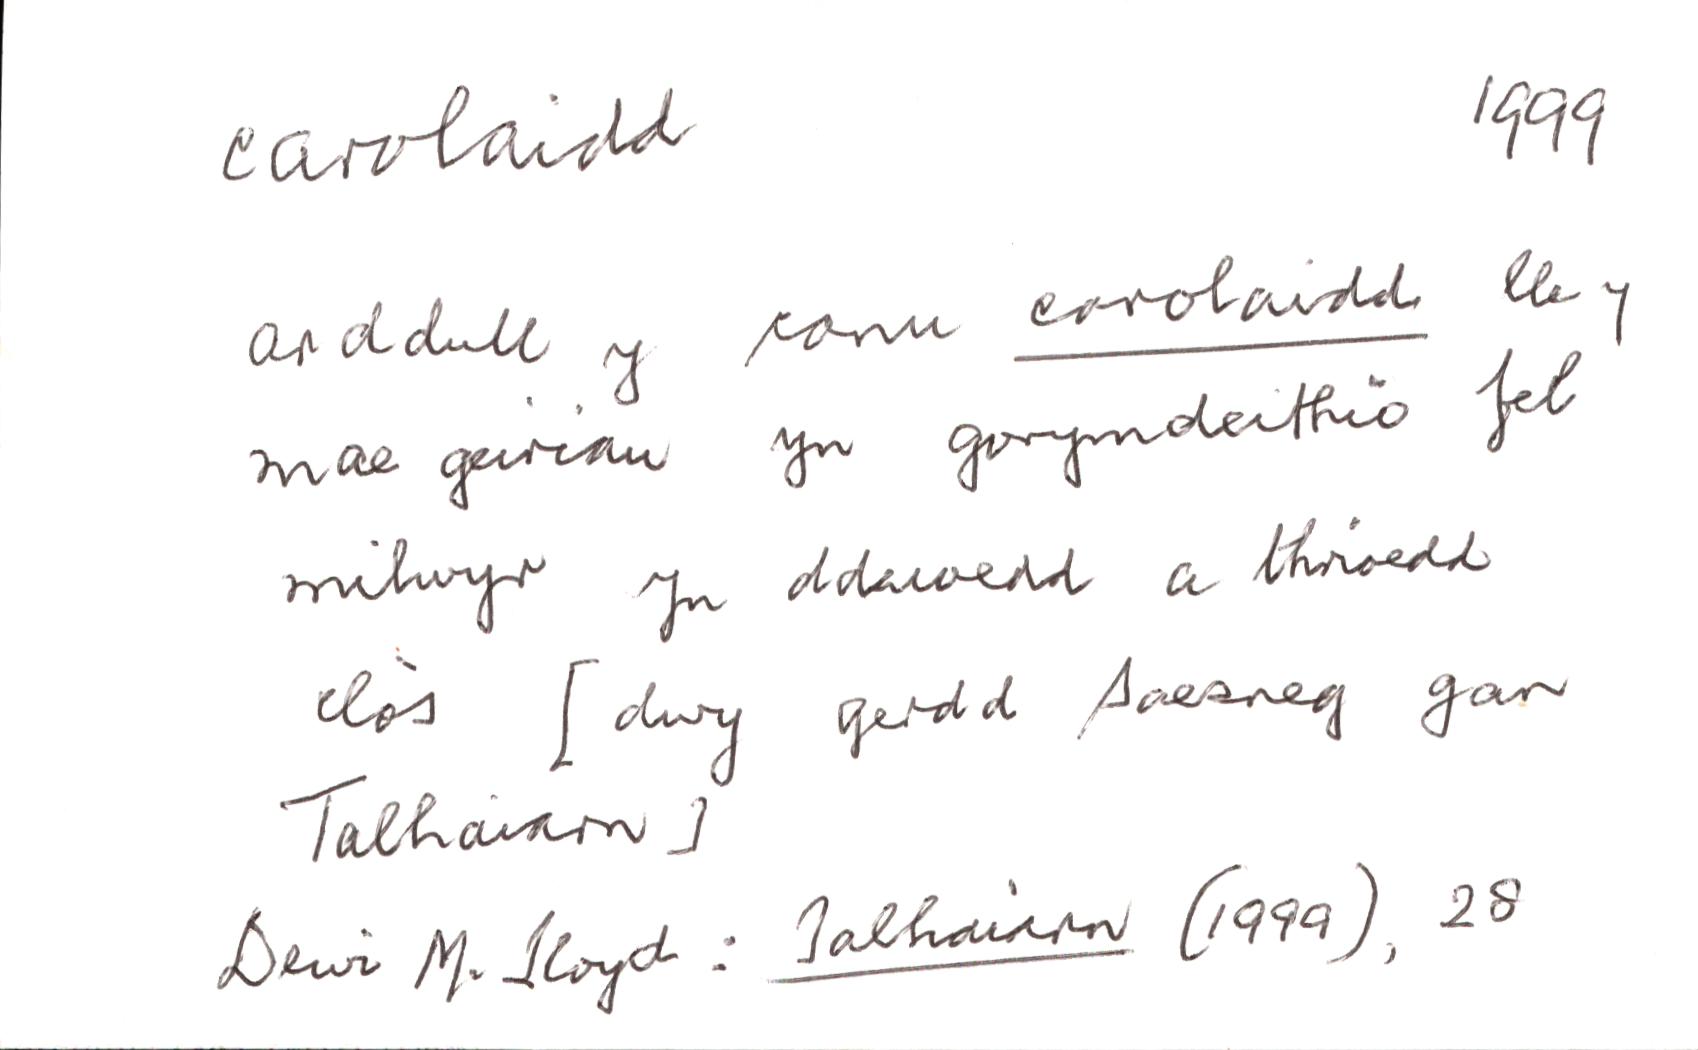 carolaidd 1999
arddull y canu carolaidd lle y
mae geiriau yn gorymdeithio fel
milwyr yn ddauoedd a thrioedd
clòs [dwy gerdd Saesneg gan
Talhaiarn]
Dewi M. Lloyd: Talhaiarn (1999), 28